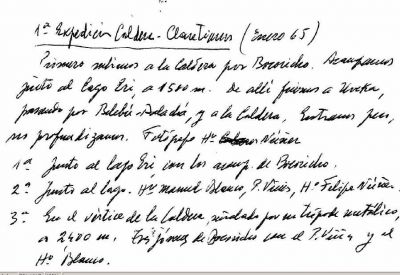 1ª Expedición Caldera - Claretianos (Enero 65)
Primero subimos a la Caldera por Bososicho. Acampamos
junto al Lago Eri, a 1500 m. De allí fuimos a Ureka,
pasando por Belebú-Adadá, y a la Caldera. Entramos, pero,
no profundizamos. Fotógrafo Hº Núñez
1ª Junto al Lago Eri con los acomp. de Bososicho.
2ª Junto al Lago. Hº Manuel Blanco, P. Viñas, Hº Felipe Núñez.
3ª En el vértice de la Caldera, señalado por un trípode metálico,
a 2400 m. Tres jóvenes de Bososicho con el P. Viñas y el
Hº Blanco.